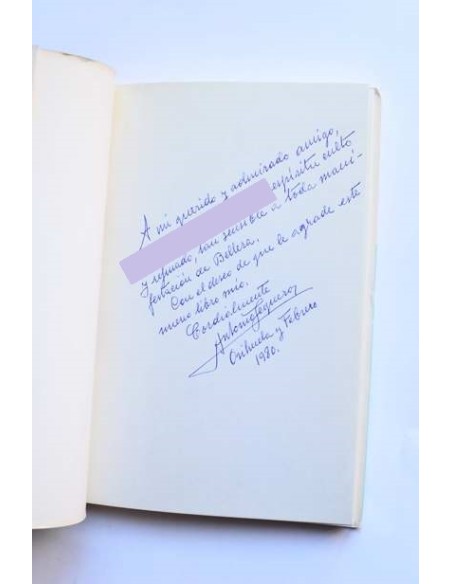 A mi querido y admirado amigo,
espíritu culto
y refinado, tan sensible a toda mani-
festación de Belleza.
Con el deseo de que le agrade este
nuevo libro mío.
Cordialmente
Antonio Sequeros
Orihuela y Febrero
1980.